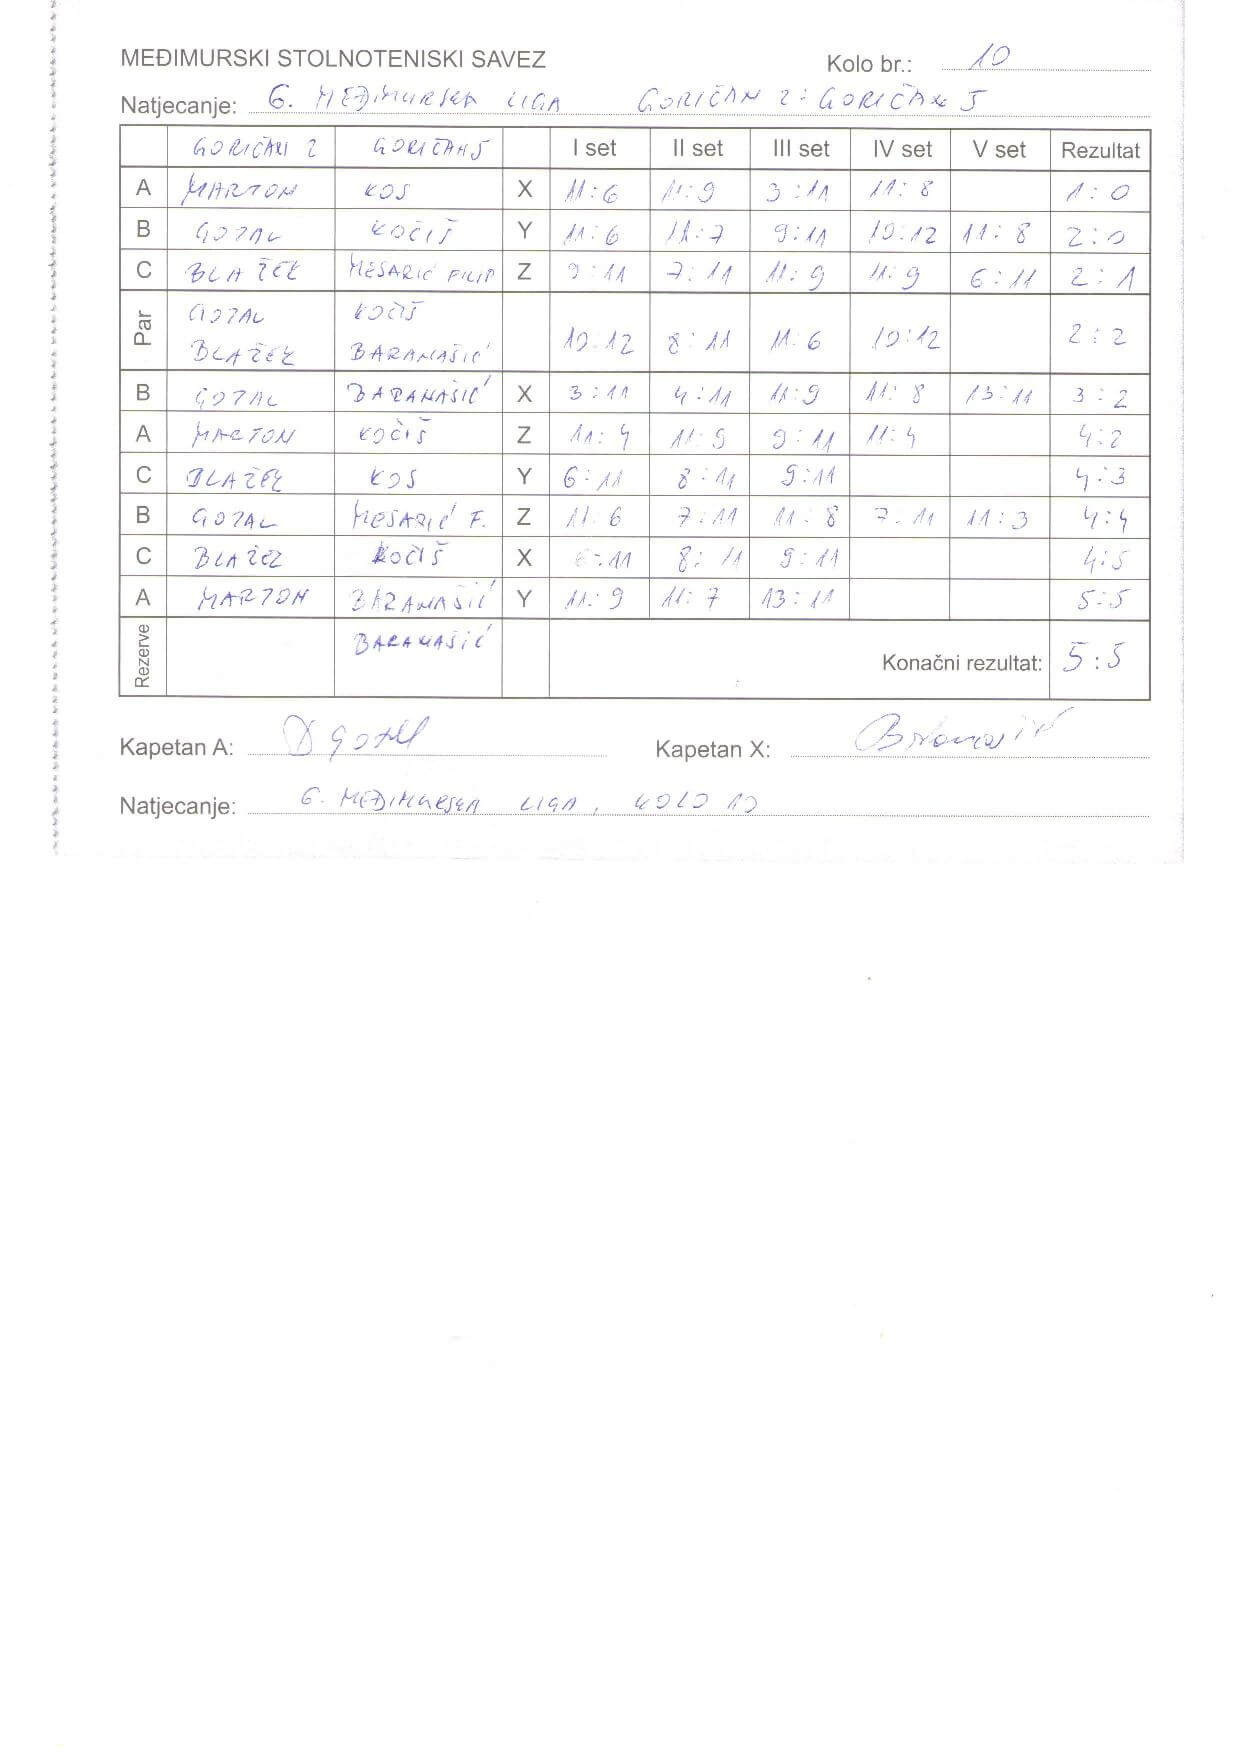 MEĐIMURSKI STOLNOTENISKI SAVEZ Kolo br.: 10
Natjecanje: 6. MEĐIMURSKA LIGA GORIČAN 2 : GORIČAN 5
GORIČAN 2 GORIČAN 5 I set II set III set IV set V set Rezultat
A MARTON KOS X 11:6 11:9 3:11 11:8 1:0
B GOTAL KOČIŠ Y 11:6 11:7 9:11 10:12 11:8 2:0
C BLAŽEK MESARIĆ FILIP Z 9:11 7:11 11:9 11:9 6:11 2:1
Par GOTAL KOČIŠ
BLAŽEK BARANAŠIĆ 10:12 8:11 11:6 10:12 2:2
B GOTAL BARANAŠIĆ X 3:11 4:11 11:9 11:8 13:11 3:2
A MARTON KOČIŠ Z 11:4 11:9 9:11 11:4 4:2
C BLAŽEK KOS Y 6:11 8:11 9:11 4:3
B GOTAL MESARIĆ F. Z 11:6 7:11 11:8 7:11 11:3 4:4
C BLAŽEK KOČIŠ X 6:11 8:11 9:11 4:5
A MARTON BARANAŠIĆ Y 11:9 11:7 13:11 5:5
Rezerve BARANAŠIĆ Konačni rezultat: 5:5
Kapetan A: Kapetan X:
Natjecanje: 6. MEĐIMURSKA LIGA, KOLO 10